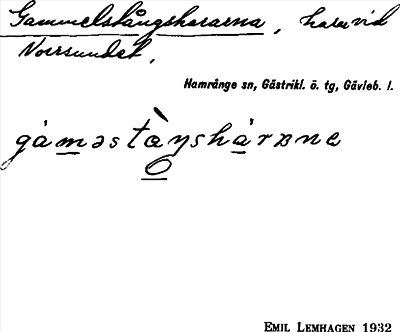 Gammelstångshararna, harar vid
Norrsundet,
Hamrånge sn, Gästrikl. ö. tg, Gävleb. l.
gàməstàŋshàrɐna
o
EMIL LEMHAGEN 1932